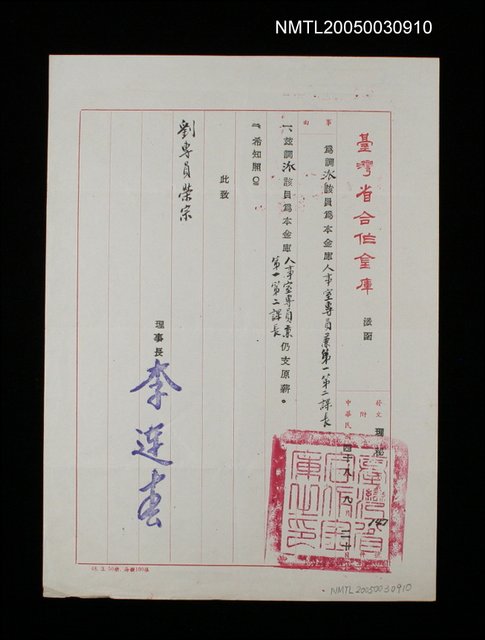 NMTL20050030910
臺灣省合作金庫 箋函
事由
為調派該員為本金庫人事室專員兼第一第二課長
發文
附
中華民國四十八年九月二十日
147
一、茲調派該員為本金庫人事室專員兼第一第二課長仍支原薪。
二、希知照。
此致
劉專員榮宗
理事長 李連春
臺灣省合作金庫之印
NMTL20050030910